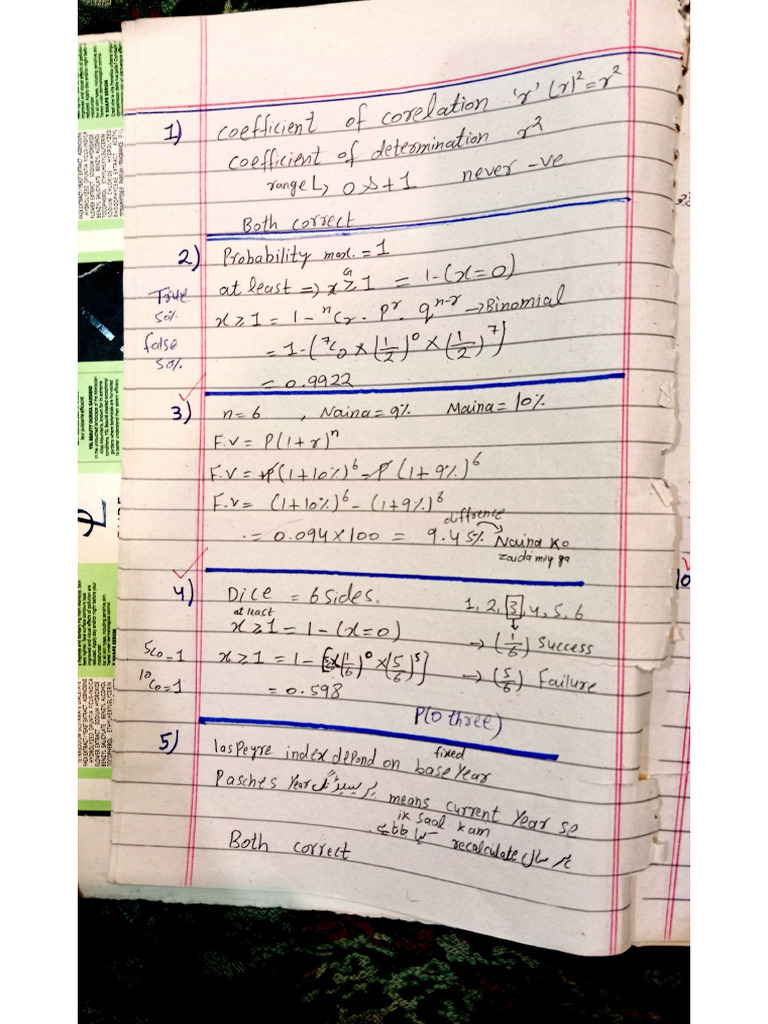 1) coefficient of corelation 'r' (r)² = r²
coefficient of determination r²
range ↳ 0 → +1 never -ve
Both correct
2) Probability max. = 1
at least ⇒ x ≥ 1 = 1-(x=0)
True
50%
x ≥ 1 = 1 - ⁿCr . Pʳ . qⁿ⁻ʳ → Binomial
false
50%
= 1-(⁷C0 × (1/2)⁰ × (1/2)⁷)
= 0.9922
3) n=6 , Naina = 9% Maina = 10%
F.v = P(1+r)ⁿ
F.v = P(1+10%)⁶ - P(1+9%)⁶
F.v = (1+10%)⁶ - (1+9%)⁶
diffrence
= 0.094×100 = 9.45% Naina Ko
zaida miy ga
4) Dice = 6 sides. 1, 2, 3, 4, 5, 6
at least
x ≥ 1 = 1-(x=0) → (1/6) Success
5C0 = 1
x ≥ 1 = 1-[(1/6)⁰ × (5/6)⁵] → (5/6) Failure
10C0 = 1
= 0.598
P(0 three)
5) lasPeyre index depond on fixed base Year
Pasches Year means current Year se
ik saal kam
ہر سال recalculate
Both correct
10